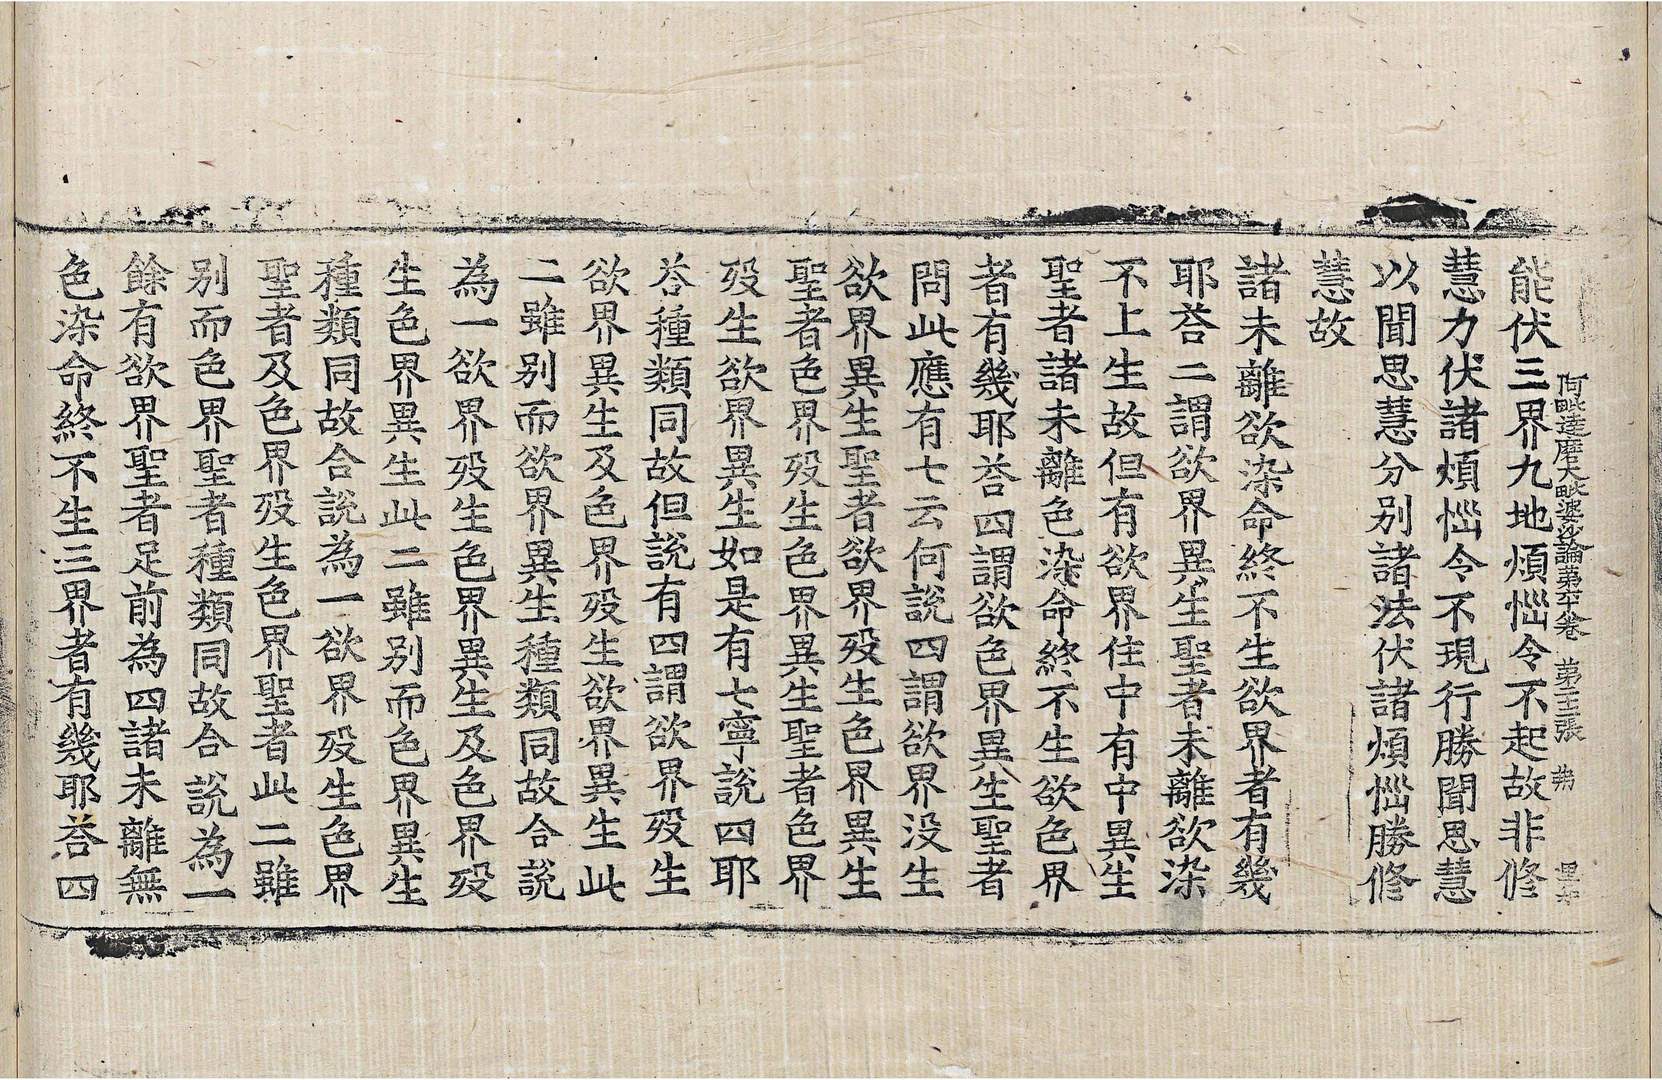 阿毗達磨大毗婆沙論第卒卷 第王張 弗
能伏三界九地煩惱令不起故非修
慧力伏諸煩惱令不現行勝聞思慧
以聞思慧分別諸法伏諸煩惱勝修
慧故
諸未離欲染命終不生欲界者有幾
耶荅二謂欲界異生聖者未離欲染
不上生故但有欲界住中有中異生
聖者諸未離色染命終不生欲色界
者有幾耶荅四謂欲色界異生聖者
問此應有七云何說四謂欲界没生
欲界異生聖者欲界歿生色界異生
聖者色界歿生色界異生聖者色界
歿生欲界異生如是有七寧說四耶
荅種類同故但說有四謂欲界歿生
欲界異生及色界歿生欲界異生此
二雖別而欲界異生種類同故合說
為一欲界歿生色界異生及色界歿
生色界異生此二雖別而色界異生
種類同故合說為一欲界歿生色界
聖者及色界歿生色界聖者此二雖
別而色界聖者種類同故合說為一
餘有欲界聖者足前為四諸未離無
色染命終不生三界者有幾耶荅四